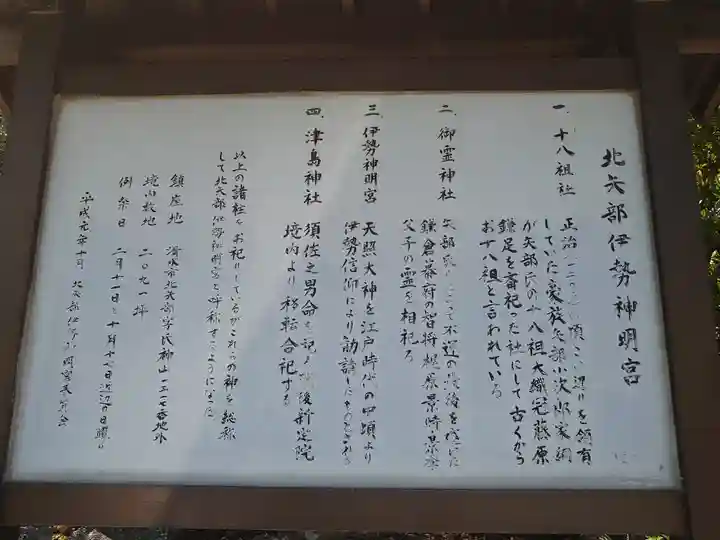 北矢部伊勢神明宮
一、十八祖社
正治二(一二〇〇)年頃この辺りを領有
していた豪族矢部小次郎家綱
が矢部氏の十八祖大織冠藤原
鎌足を斎祀った社にして古くから
お十八祖と言われている
二、御霊神社
矢部家にとって不運の最後を
鎌倉幕府の智将梶原景時景季
父子の霊を相祀る
三、伊勢神明宮
天照大神を江戸時代の中頃より
伊勢信仰により勧請したものとされる
四、津島神社
須佐之男命を祀る 後新定院
境内より移転合祀する
以上の諸社をお祀りしているがこれらの神を総称
して北矢部伊勢神明宮と呼称するようになった
鎮座地 清水市北矢部字氏神山一三一七番地外
境内敷地 二〇九一坪
例祭日 二月十一日と十月十七日近辺の日曜日
平成元年十月 北矢部伊勢神明宮奉賛会